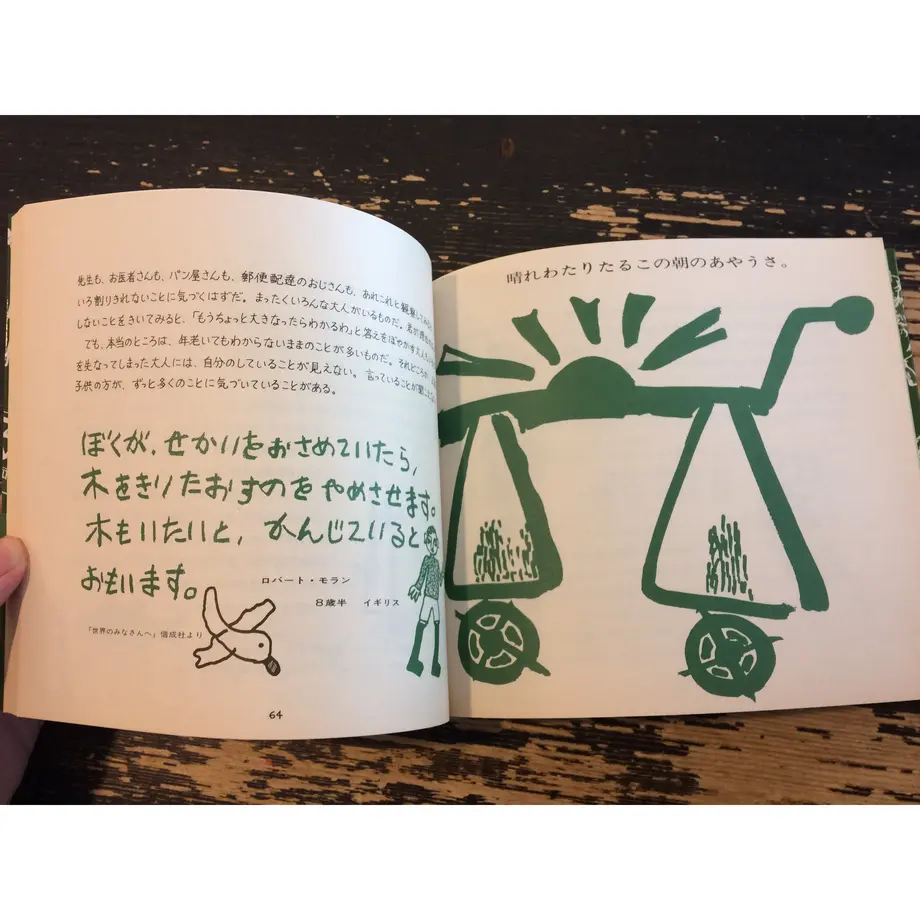 先生も、お医者さんも、パン屋さんも、郵便配達のおじさんも、あれこれと観察してみる
いろ割りきれないことに気づくはずだ。まったくいろんな大人がいるものだ。君が
しないことをきいてみると、「もうちょっと大きくなったらわかるわ」と答えをぼやかす大人
ても、本当のところは、年老いてもわからないままのことが多いものだ。それどころか
を失なってしまった大人には、自分のしていることが見えない。言っていることが聞こ
子供の方が、ずっと多くのことに気づいていることがある。
ぼくが、せかいをおさめていたら、
木をきりたおすのをやめさせます。
木もいたいと、かんじていると
おもいます。
ロバート・モラン
8歳半 イギリス
「世界のみなさんへ」偕成社より
64
晴れわたりたるこの朝のあやうさ。